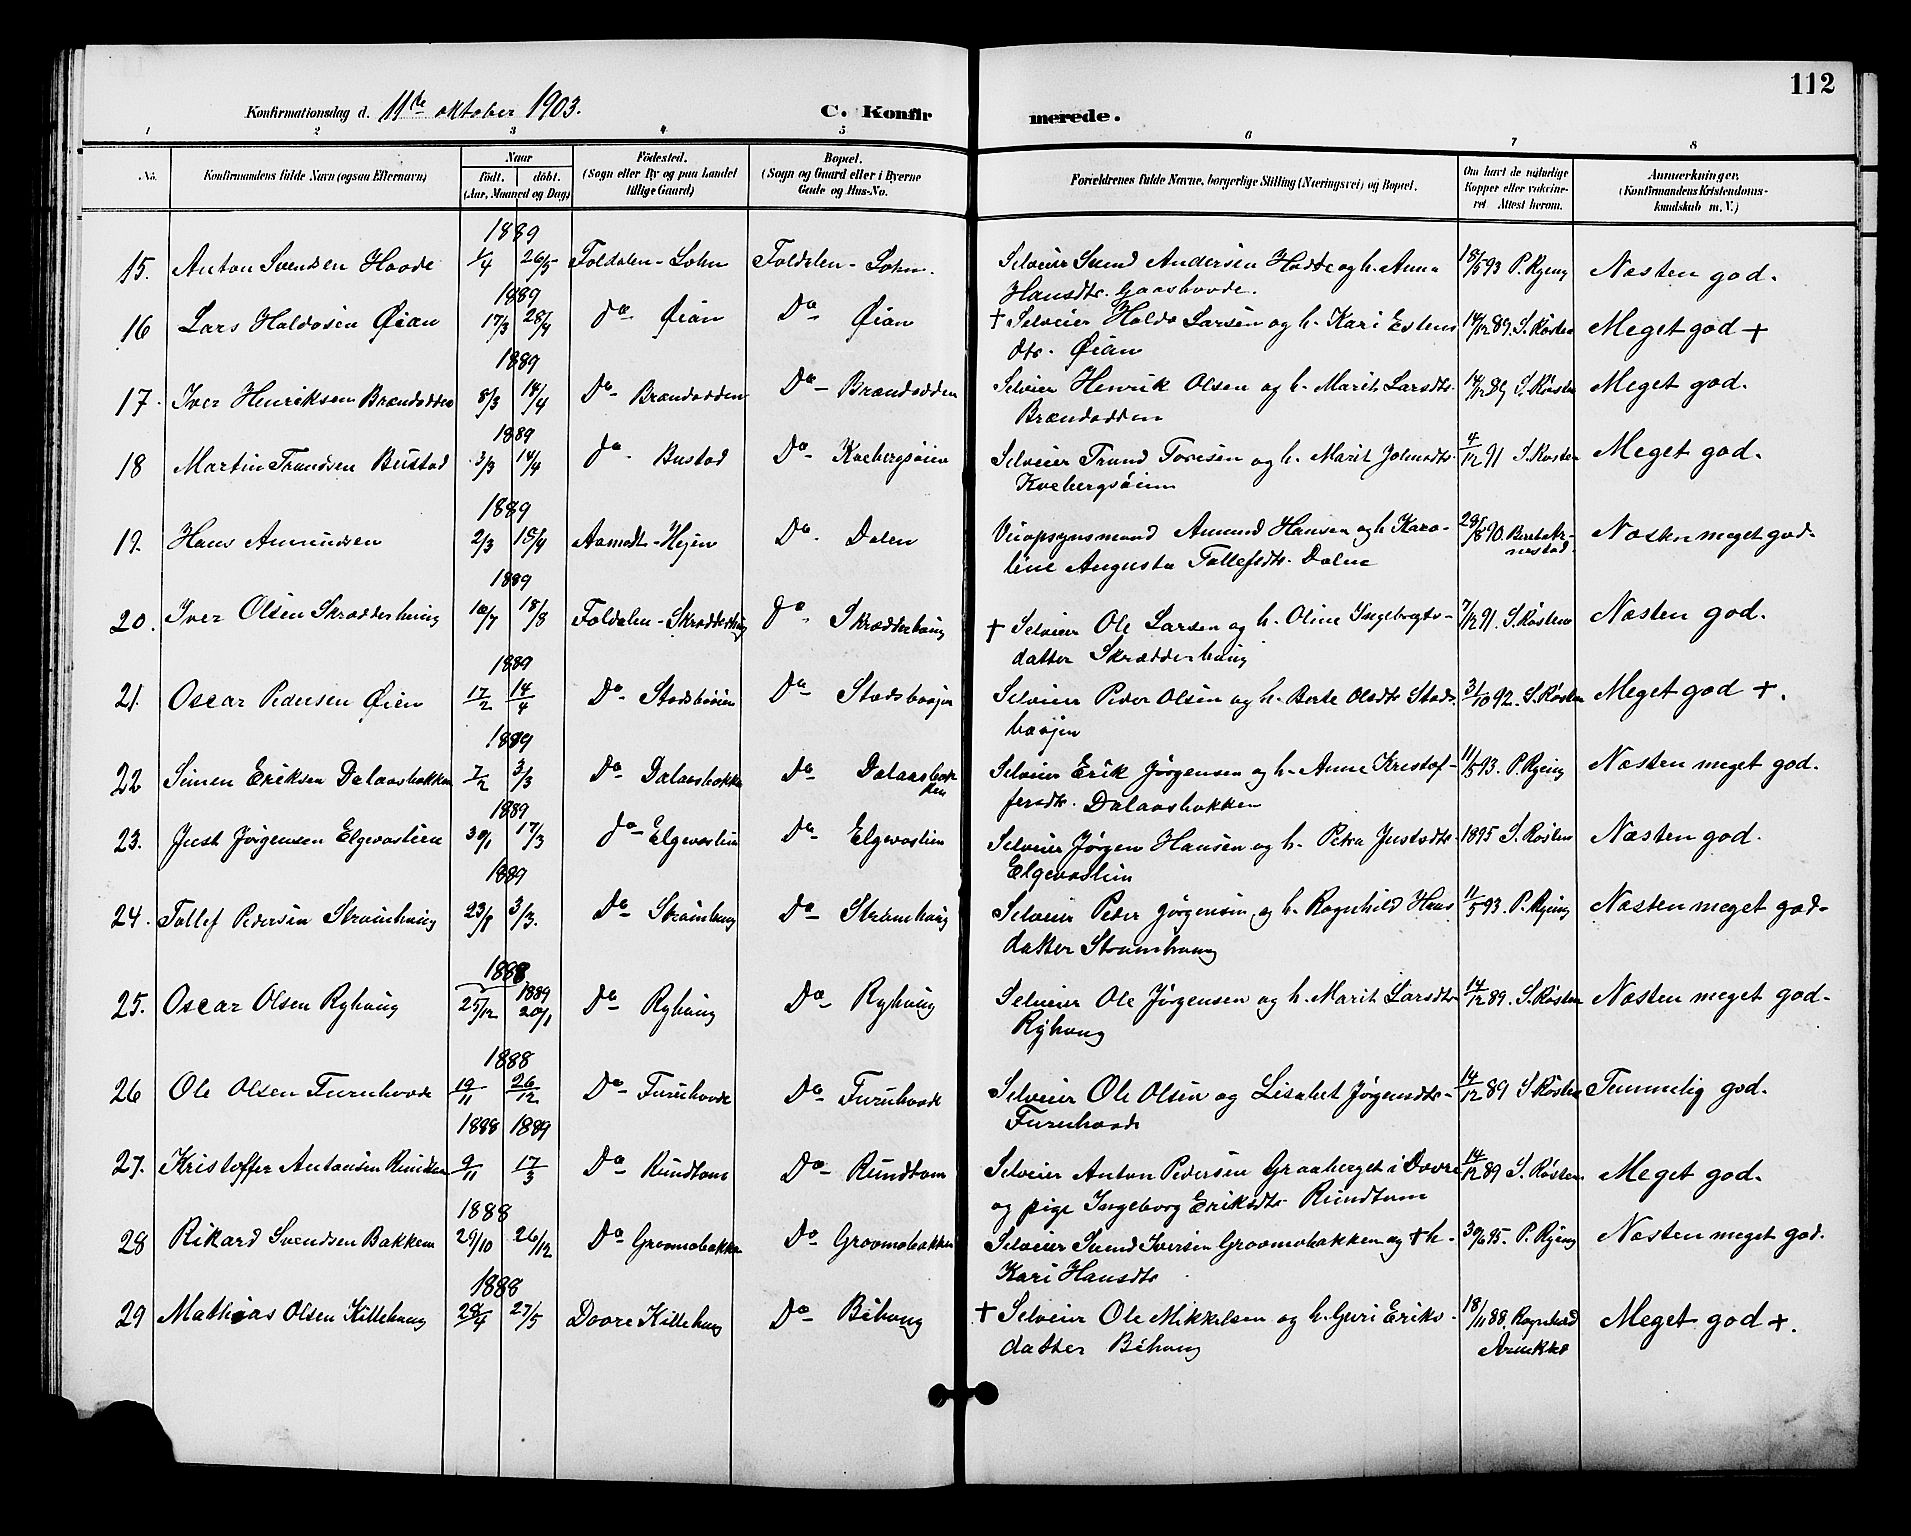 112
Konfirmationsdag d. 11te oktober 1903. C. Konfirmerede.
1 2 3 4 5 6 7 8
No. Konfirmandens fulde Navn (ogsaa Efternavn) Naar födt. döbt. (Aar, Maaned og Dag) Födested. (Sogn eller By og paa Landet tillige Gaard) Bopæl. (Sogn og Gaard eller i Byerne Gade og Hus-No. Forældrenes fulde Navne, borgerlige Stilling (Næringsvei) og Bopæl. Om havt de naturlige Kopper eller vakcineret Attest herom. Anmærkninger. (Konfirmandens Kristendomskundskab m. V.)
1889
15. Anton Svendsen Hovde 1/4 26/5 Foldalen - Sohn Foldalen - Sohn. Selveier Svend Andersen Hovde og h. Anne 18/5 93 P. Ryeng Næsten god.
Hansdtr. Gaashovde.
1889
16 Lars Haldosen Øian 17/3 28/4 do Øian Do Øian + Selveier Haldo Larsen og h. Kari Estens 14/12 89. S. Kosten Meget god +
dtr. Øian
1889
17. Iver Henriksen Brændodden 8/3 14/4 Do Brændodden Do Brændodden Selveier Henrik Olsen og h. Marit Larsdtr. 14/12 89 S. Kosten Meget god.
Brændodden
1889
18 Martin Trondsen Bustad 3/3 14/4 do Bustad Do Kvebergsøien Selveier Trond Toresen og h. Marit Johnsdtr. 4/12 91 S. Kosten Meget god.
Kvebergsøien
1889
19. Hans Amundsen 2/3 15/4 Aamodt - Do. Dalen Veiopsynsmand Amund Hansen og h. Karo- 28/8 90. Næsten meget god.
line Augusta Tollefsdtr. Dalen
1889
20. Iver Olsen Skrædderhaug 10/7 18/8 Foldalen - Skrædderhaug do Skrædderhaug + Selveier Ole Larsen og h. Oline Ingebrigts- 7/12 91. S. Kosten Næsten god.
datter Skrædderhaug
1889
21. Oscar Pedersen Øien 17/2 14/4 Do Stadsbøien Do Stadsbøien Selveier Peder Olsen og h. Berte Olsdtr Stads- 3/10 92. S. Kosten Meget god +.
1889
22 Simen Eriksen Dalaasbakken 7/2 3/3 Do Dalaasbakken Do Dalaasbakken Selveier Erik Jørgensen og h. Anne Kristof- 11/5 93. P. Ryeng Næsten meget god.
fersdtr. Dalaasbakken
1889
23. Just Jørgensen Elgevaslien 30/1 17/3 do Elgevaslien Do Elgevaslien Selveier Jørgen Hansen og h. Petra Justsdtr. 1895 S. Kosten Næsten god.
Elgevaslien
1889
24. Tollef Pedersen Strømhaug 23/1 3/3. Do Strømhaug Do Strømhaug Selveier Peder Jørgensen og h. Ragnhild Hans 11/5 93 P. Ryeng Næsten meget god.
datter Strømhaug
1888
25. Oscar Olsen Ryhaug 25/12 1889 20/1 Do Ryhaug Do Ryhaug Selveier Ole Jørgensen og h. Marit Larsdtr. 14/12 89. S. Kosten Næsten meget god.
Ryhaug
1888
26 Ole Olsen Furuhovde 19/11 26/12 Do Furuhovde Do Furuhovde Selveier Ole Olsen og Lisabet Jørgensdtr. 14/12 89 S. Kosten Temmelig god.
Furuhovde
1888 1889
27. Kristoffer Antonsen 9/11 17/3 Do Rundtom Do Rundtom Selveier Anton Pedersen Graaberget i Dovre 14/12 89 S. Kosten. Meget god.
og pige Ingeborg Eriksdtr Rundtom
1888
28 Rikard Svendsen Bakken 29/10 26/12 Do Grovmobakken Do Grovmobakken Selveier Svend Iversen Grovmobakken og + h. 30/6 95. P. Ryeng Næsten meget god.
Kari Hansdtr
1888
29 Mathias Olsen Killehaug 28/4 27/5 Dovre Killehaug Do Bihaug + Selveier Ole Mikkelsen og h. Guri Eriks- 18/11 88. Ragnhild Meget god +.
datter Bihaug